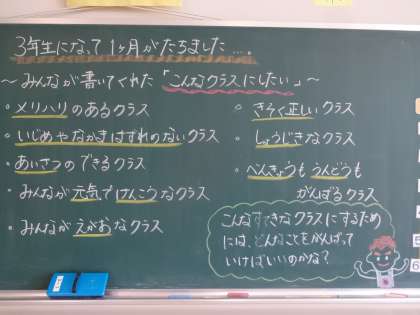 3年生になって1ヶ月がたちました….
～みんなが書いてくれた「こんなクラスにしたい」～
・メリハリのあるクラス
・いじめやなかまはずれのないクラス
・あいさつのできるクラス
・みんなが元気でけんこうなクラス
・みんながえがおなクラス
・きそく正しいクラス
・しょうじきなクラス
・べんきょうもうんどうも
がんばるクラス
こんなすてきなクラスにするため
には、どんなことをがんばって
いけばいいのかな？